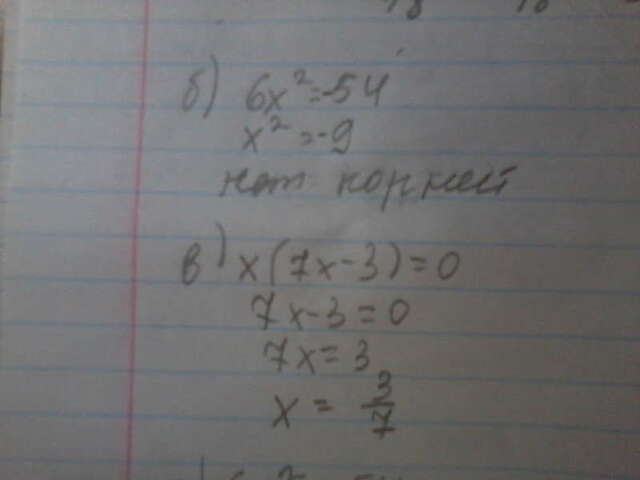 б) 6x²=-54
x²=-9
нет корней
в) x(7x-3)=0
7x-3=0
7x=3
x = 3/7